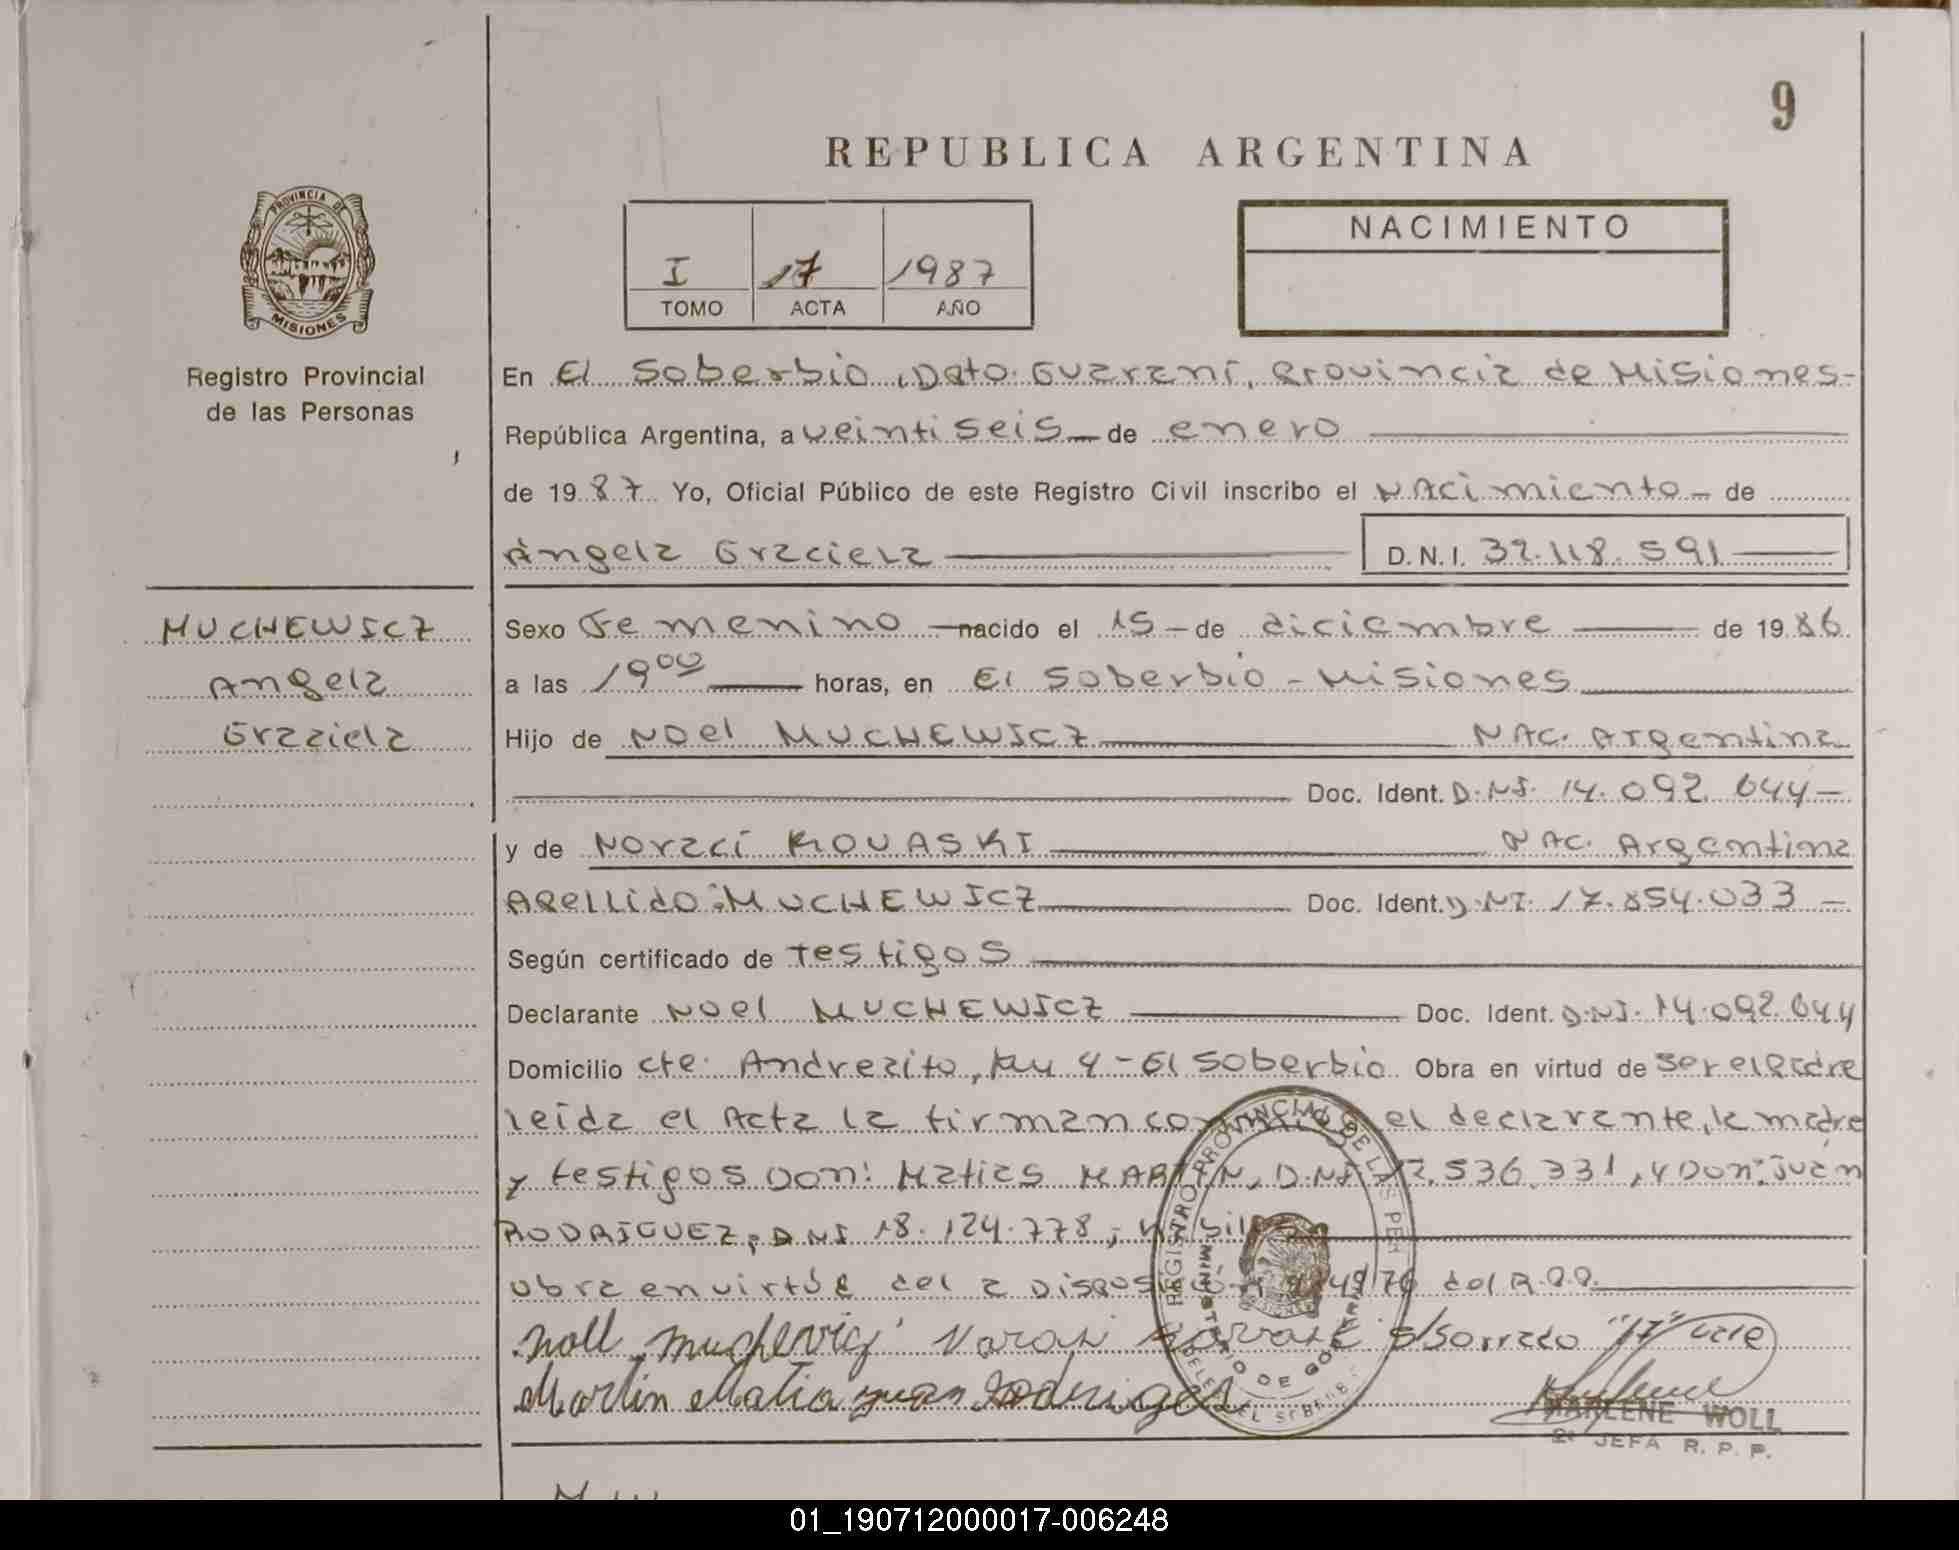 9
REPUBLICA ARGENTINA
PROVINCIA DE
MISIONES
Registro Provincial
de las Personas
I 17 1987
TOMO ACTA AÑO
NACIMIENTO
En El Soberbio, Dpto. Guaraní, Provincia de Misiones-
República Argentina, a veintiseis de enero
de 1987 Yo, Oficial Público de este Registro Civil inscribo el NACimiento - de
Ángela Graciela D.N.I. 32.118.591
MUCHEWICZ
Angela
Graciela
Sexo Femenino nacido el 15 - de diciembre de 1986
a las 19⁰⁰ horas, en El Soberbio - Misiones
Hijo de Noel MUCHEWICZ NAC. Argentina
Doc. Ident. D.NI. 14.092.644-
y de Noraci KOVASKI NAC. Argentina
Apellido: MUCHEWICZ Doc. Ident. D.NI. 17.854.033 -
Según certificado de Testigos
Declarante Noel MUCHEWICZ Doc. Ident. D.NI. 14.092.644
Domicilio Cte. Andresito, km 4 - El Soberbio Obra en virtud de ser el padre
leída el Acta la firman conmigo el declarante, la madre
y testigos Don: Matias MARTIN, D.NI 12.536.331, y Don: Juan
RODRIGUEZ, DNI 18.124.778,
Obra en virtud del a Disposición 49/76 del R.P.P.
Noll Muchevicz s/borrado "17" vale
Martin Matia Juan Rodrigez
MARLENE WOLL
JEFA R. P. P.
REGISTRO PROVINCIAL DE LAS PER
MINISTERIO DE GO
01_190712000017-006248